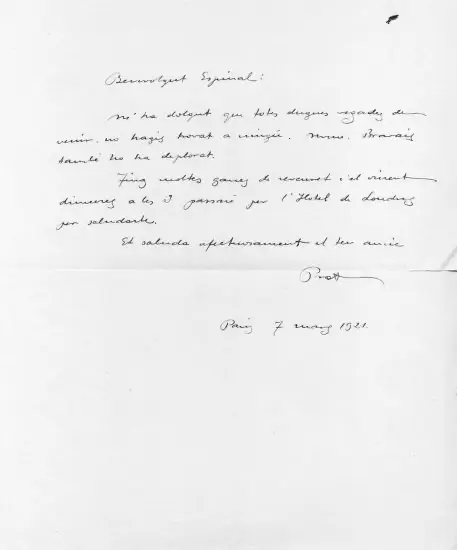 Benvolgut Espinal:
M'ha dolgut que totes dugues vegades de
venir, no hagis trovat a ningú. Mme. Bravais
també ho ha deplorat.
Tinc moltes ganes de reveuret i el vinent
dimecres a les 3 passaré per l'Hotel de Londres
per saludarte.
Et saluda afectuosament el teu amic
Prat
Paris 7 maig 1921.